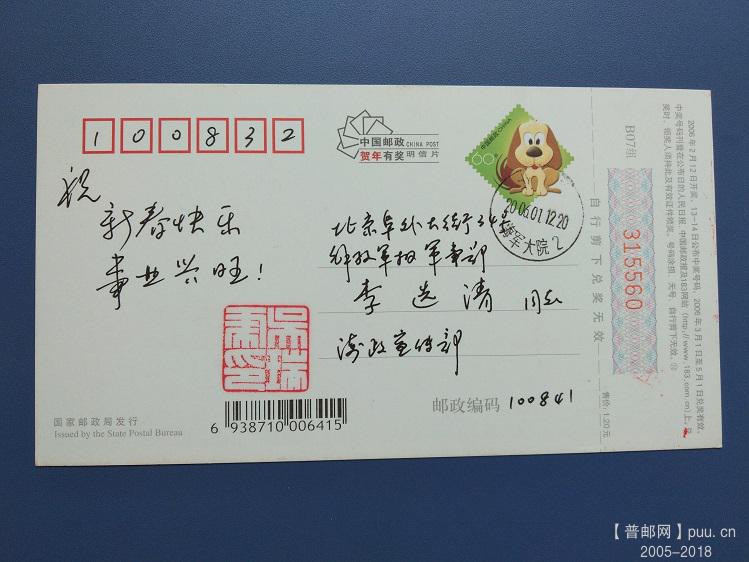 100832
中国邮政 CHINA POST
贺年有奖明信片
中国邮政 CHINA
2006.01.12.20
海军大院 2
祝
新春快乐
事业兴旺！
北京阜外大街34号
解放军报军事部
李选清 同志
海政宣传部
邮政编码 100841
国家邮政局发行
Issued by the State Postal Bureau
6 938710 006415
自行剪下兑奖无效
售价：1.20元
B07组
315560
2006年2月12日开奖，13—14日公布中奖号码，2006年3月1日至5月1日兑奖有效。
中奖号码刊登在公布日的人民日报、中国邮政报及183网站（http://www.183.com.cn)上。兑
奖时，领奖人须持此及有效证件领奖。号码涂损、无号、自行剪下无效。
【普邮网】puu.cn
2005-2018